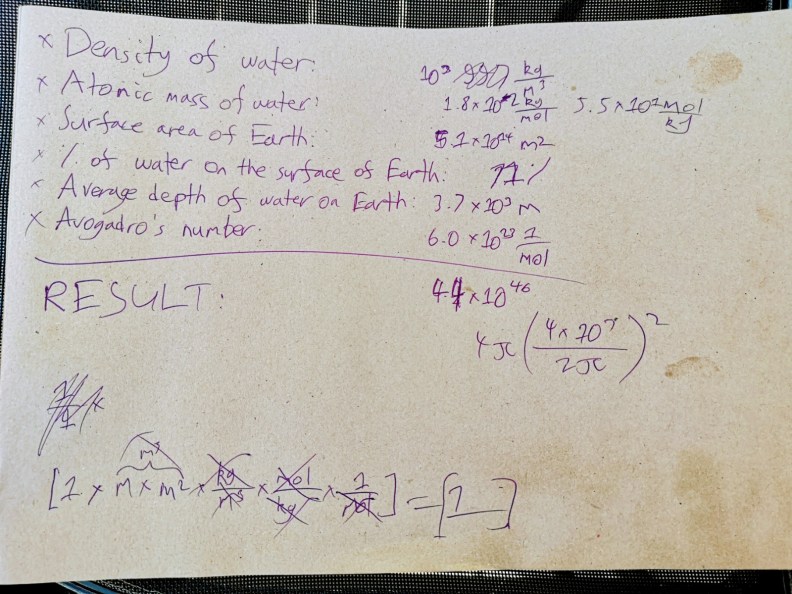 × Density of water: 10³ 990 kg/m³
× Atomic mass of water: 1.8×10⁻² kg/mol 5.5×10¹ mol/kg
× Surface area of Earth: 5.1×10¹⁴ m²
× % of water on the surface of Earth: 71%
× Average depth of water on Earth: 3.7×10³ m
× Avogadro's number: 6.0×10²³ 1/mol
RESULT: 4.4×10⁴⁶
4π(4×10⁷/2π)²
m³
[1 × m×m² × kg/m³ × mol/kg × 1/mol] = [1]